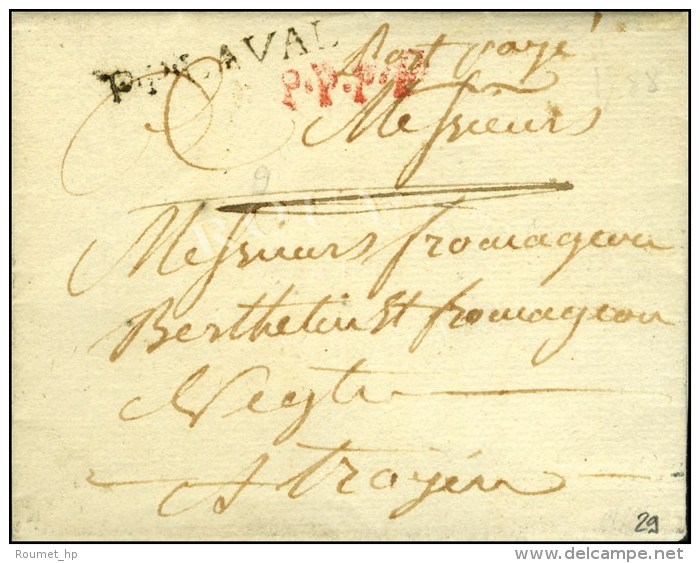 P.P.LAVAL
Port payé
P.P.P.P
A Messieurs
Messieurs fromageau
Berthelin et fromageau
Negts
A troyes
29
Roumet_hp
delcampe.net